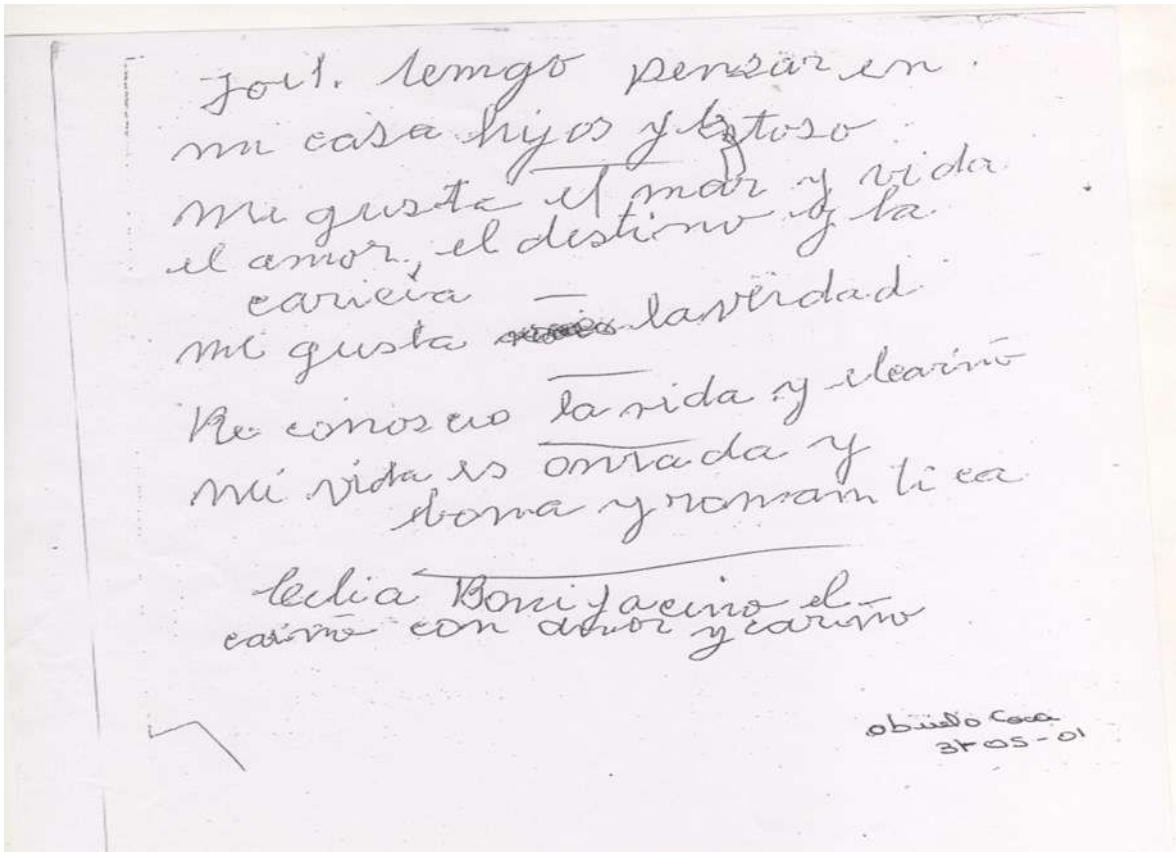 temgo pensar en
mi casa hijos y
me gusta el mar y vida
el amor, el destino y la
caricia
me gusta la verdad
Re conosco la vida y el carino
mi vida es onrada y
bona y romamtica
Bonifacino el
carino con amor y carino
Coca
05-01